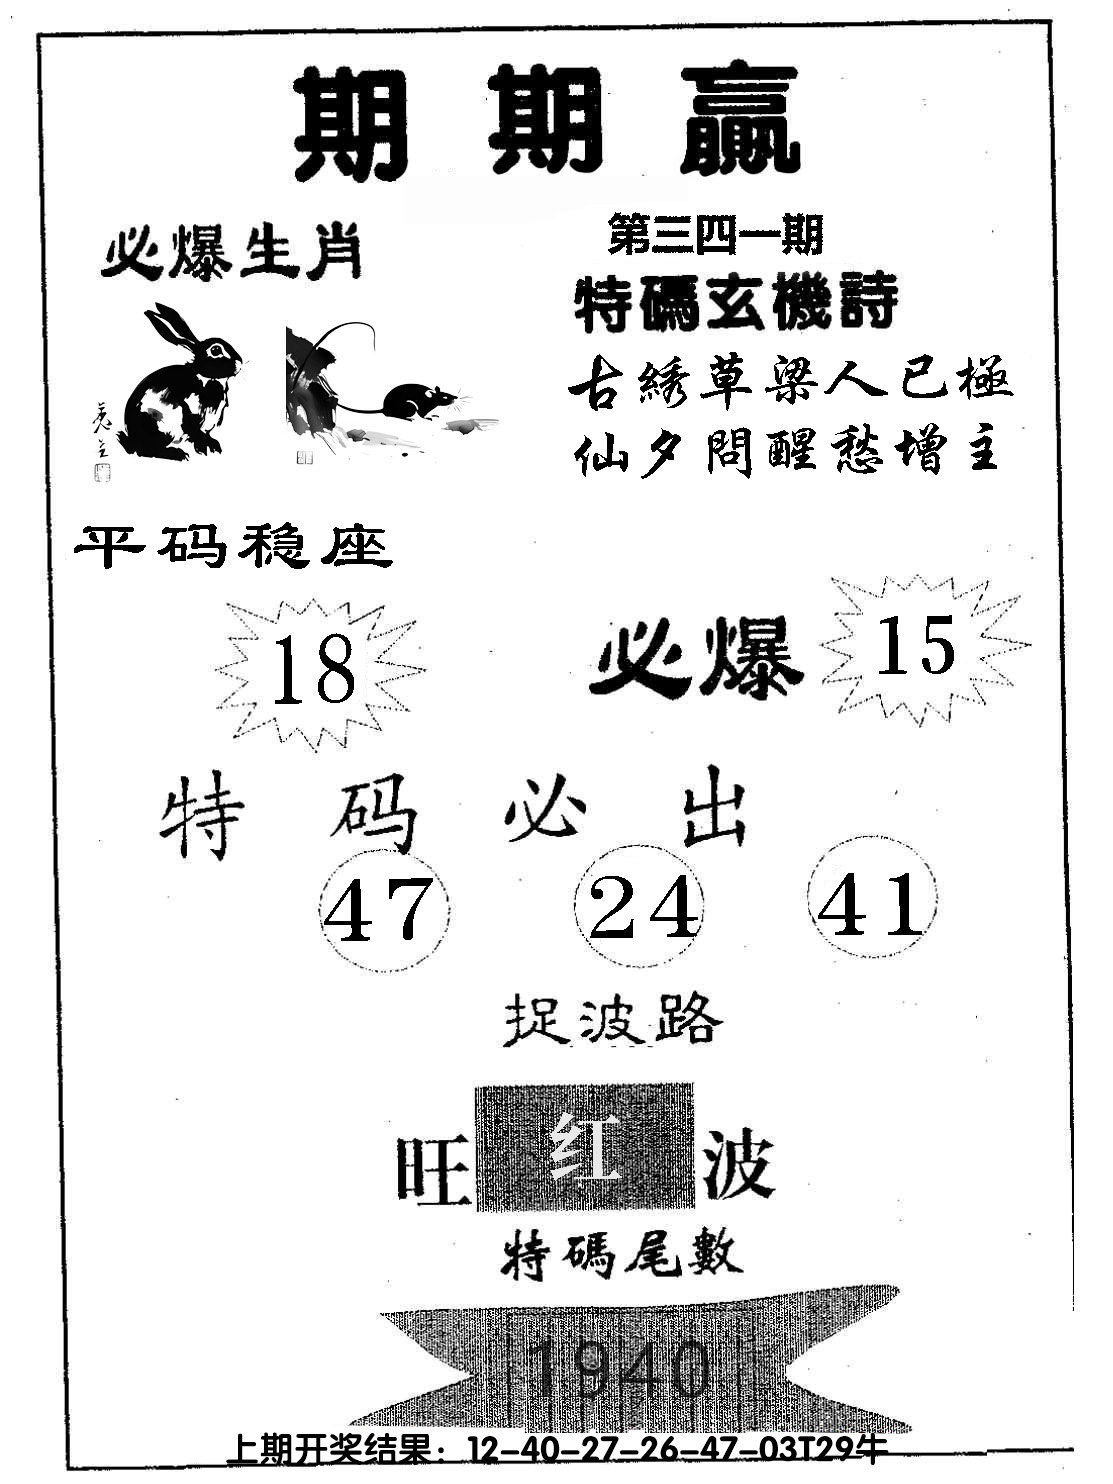 期期贏
必爆生肖
第三四一期
特碼玄機詩
古綉草梁人已極
仙夕問醒愁增主
平码稳座
18
必爆
15
特码必出
47 24 41
捉波路
旺红波
特碼尾數
1940
上期开奖结果：12-40-27-26-47-03T29牛